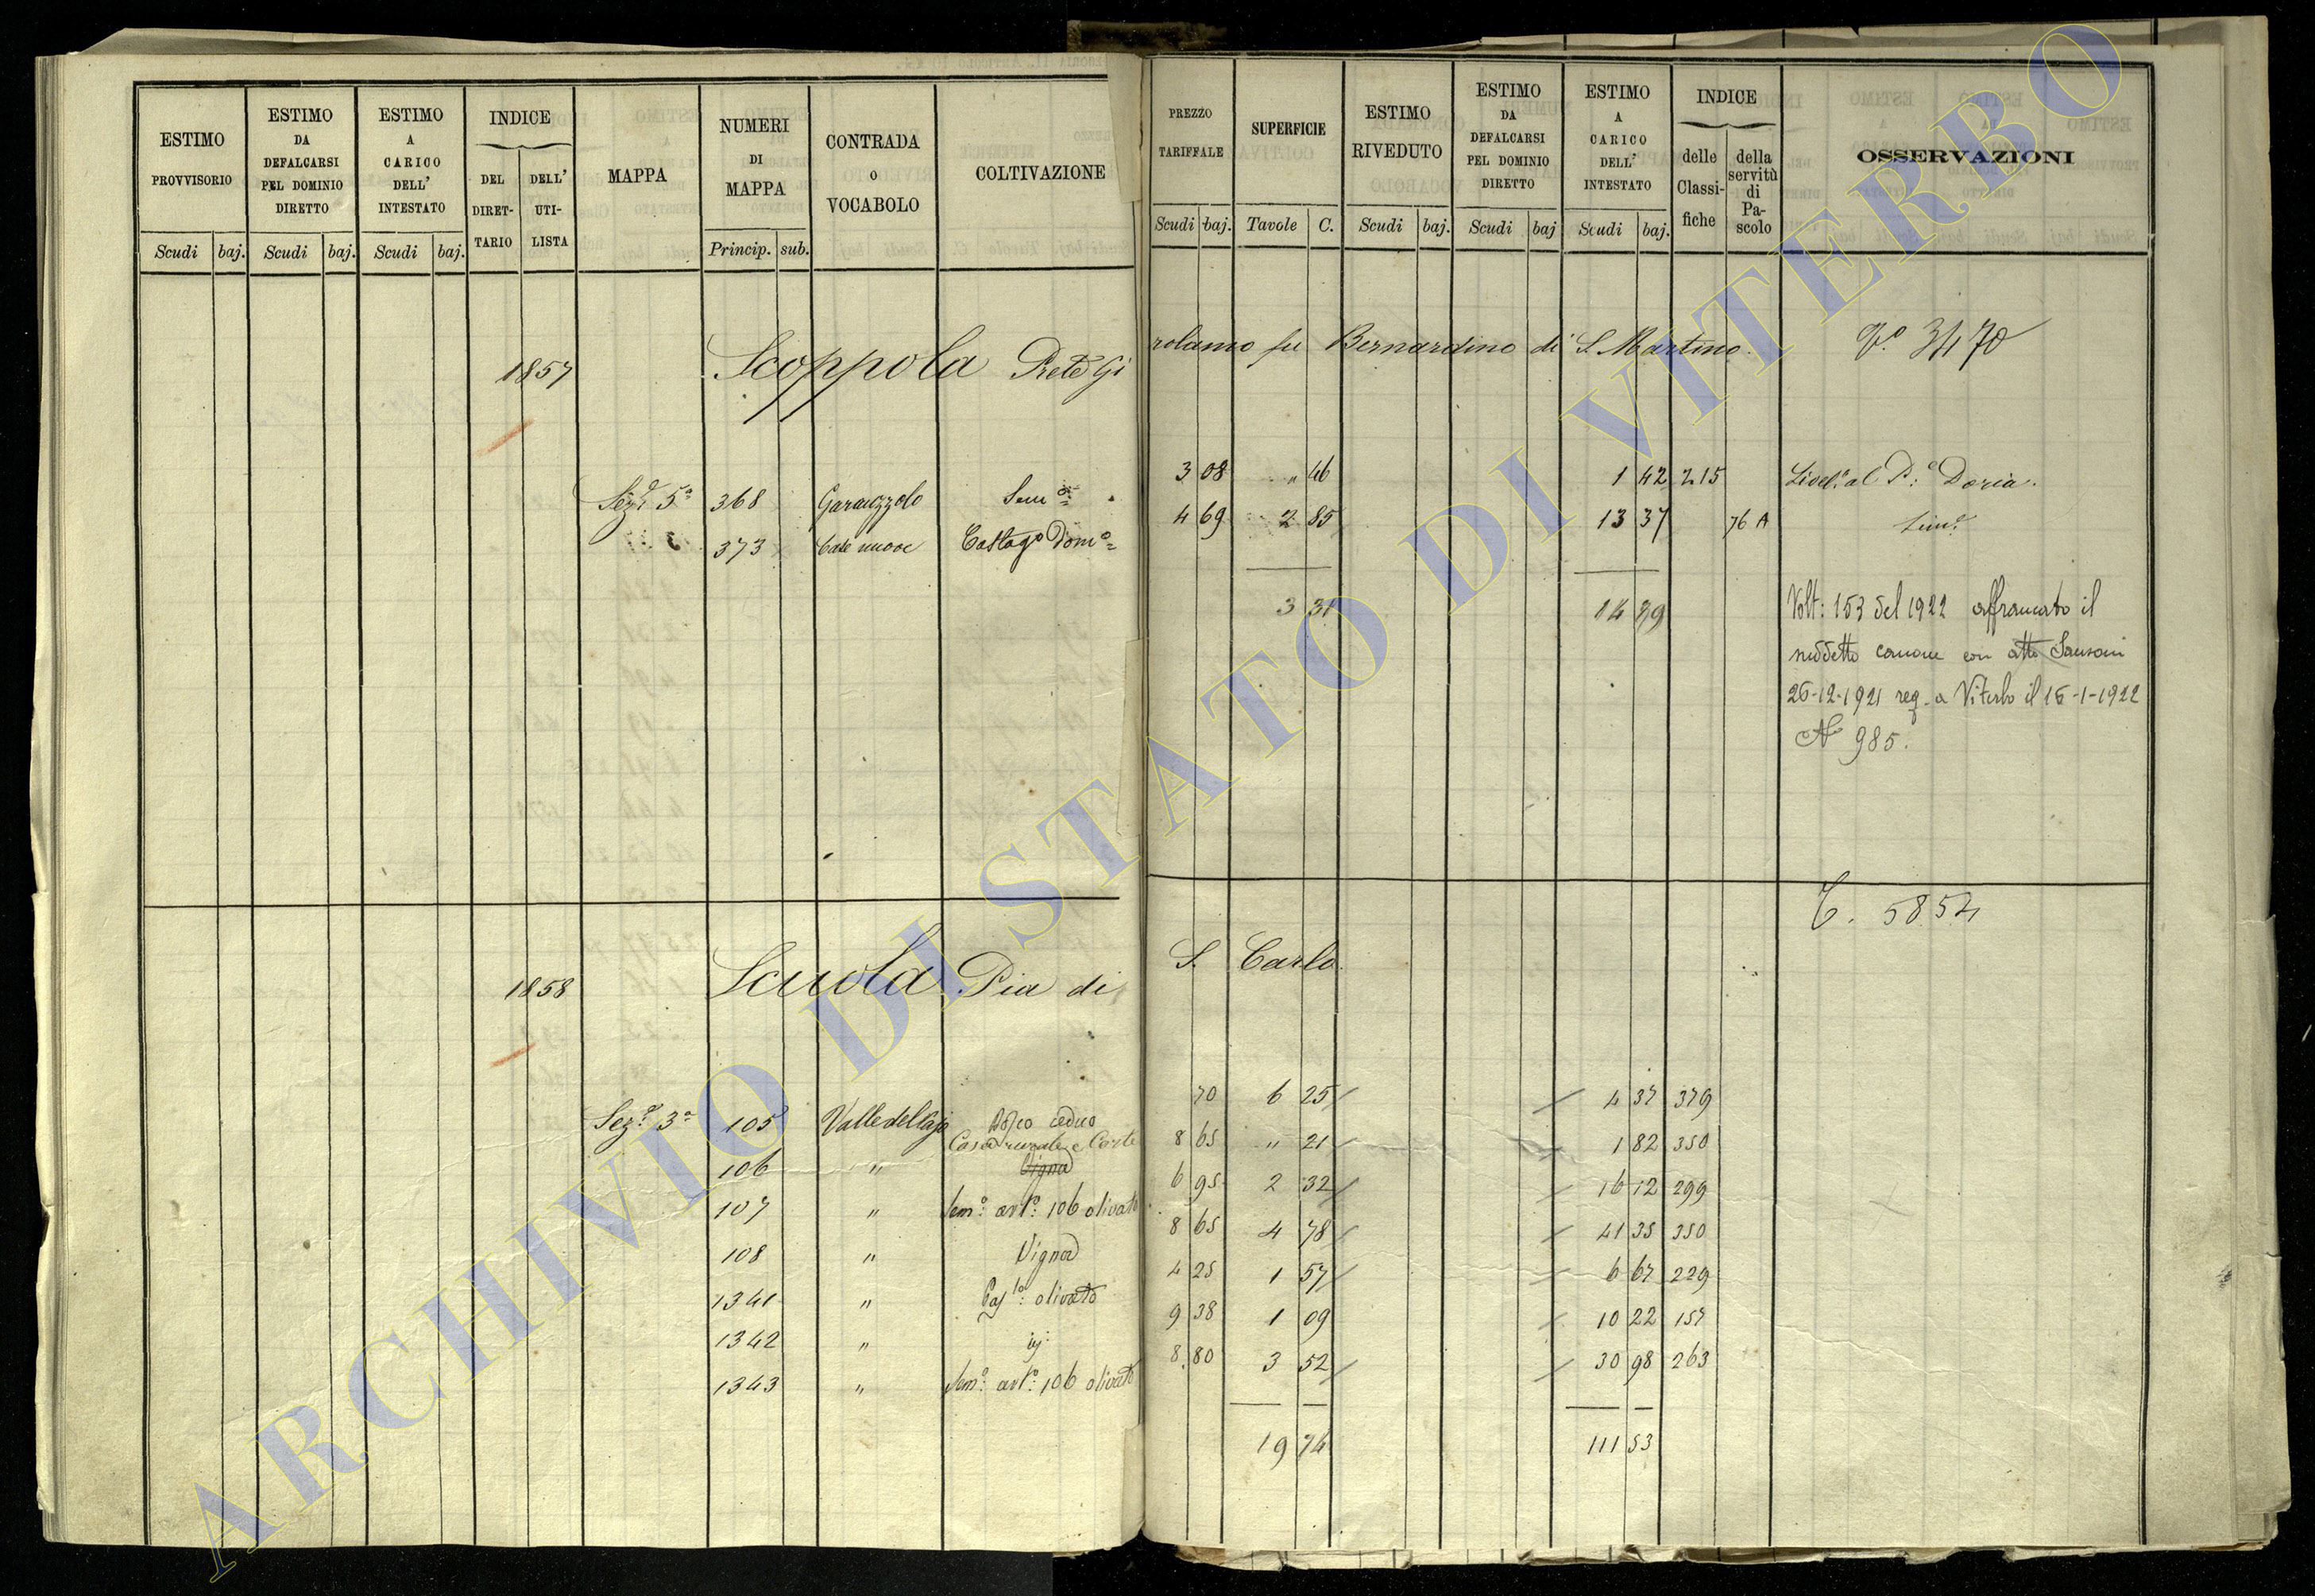 ESTIMO PROVVISORIO
Scudi baj.
ESTIMO DA DEFALCARSI PEL DOMINIO DIRETTO
Scudi baj.
ESTIMO A CARICO DELL' INTESTATO
Scudi baj.
INDICE
DEL DIRET-TARIO
DELL' UTI-LISTA
MAPPA
NUMERI DI MAPPA
Princip. sub.
CONTRADA O VOCABOLO
COLTIVAZIONE
PREZZO TARIFFALE
Scudi baj.
SUPERFICIE
Tavole C.
ESTIMO RIVEDUTO
Scudi baj.
ESTIMO DA DEFALCARSI PEL DOMINIO DIRETTO
Scudi baj
ESTIMO A CARICO DELL' INTESTATO
Scudi baj.
INDICE
delle Classi-fiche
della servitù di Pa-scolo
OSSERVAZIONI
1857 Scoppola Prete Gi rolamo fu Bernardino di S. Martino. 3470
Sez.e 5a 368 Sem.o 3 08 " 46 1 42 215 Livel.o al P.e Doria.
373 Case nuove Castag.o Dom.o 4 69 2 85 13 37 76 A
3 31 14 79
Volt: 153 del 1922 affrancato il
suddetto canone con atto Sansoni
26-12-1921 reg. a Viterbo il 16-1-1922
No 985.
5854
1858 Scuola Pia di S. Carlo.
Sez.e 3a 105 Bosco ceduo 70 6 25 4 37 379
Casa rurale e Corte
106 " Vigna 8 65 " 21 1 82 350
107 " Sem.o art.o 106 olivato 6 95 2 32 16 12 299
108 " Vigna 8 65 4 78 41 35 350
1341 " olivato 4 25 1 57 6 67 229
1342 " 9 38 1 09 10 22 157
1343 " Sem.o art.o 106 olivato 8 80 3 52 30 98 263
19 74 111 53
ARCHIVIO DI STATO DI VITERBO